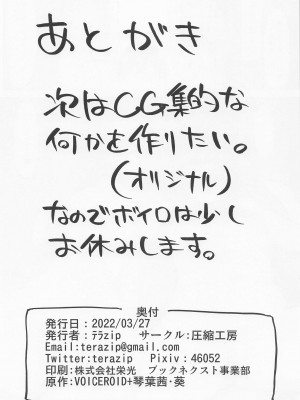 あとがき
次はCG集的な
何かを作りたい。
(オリジナル)
なのでボイロは少し
お休みします。
奥付
発行日：2022/03/27
発行者：ﾃﾗzip　サークル：圧縮工房
Email:terazip@gmail.com
Twitter:terazip　Pixiv：46052
印刷：株式会社栄光　ブックネクスト事業部
原作：VOICEROID+琴葉茜・葵